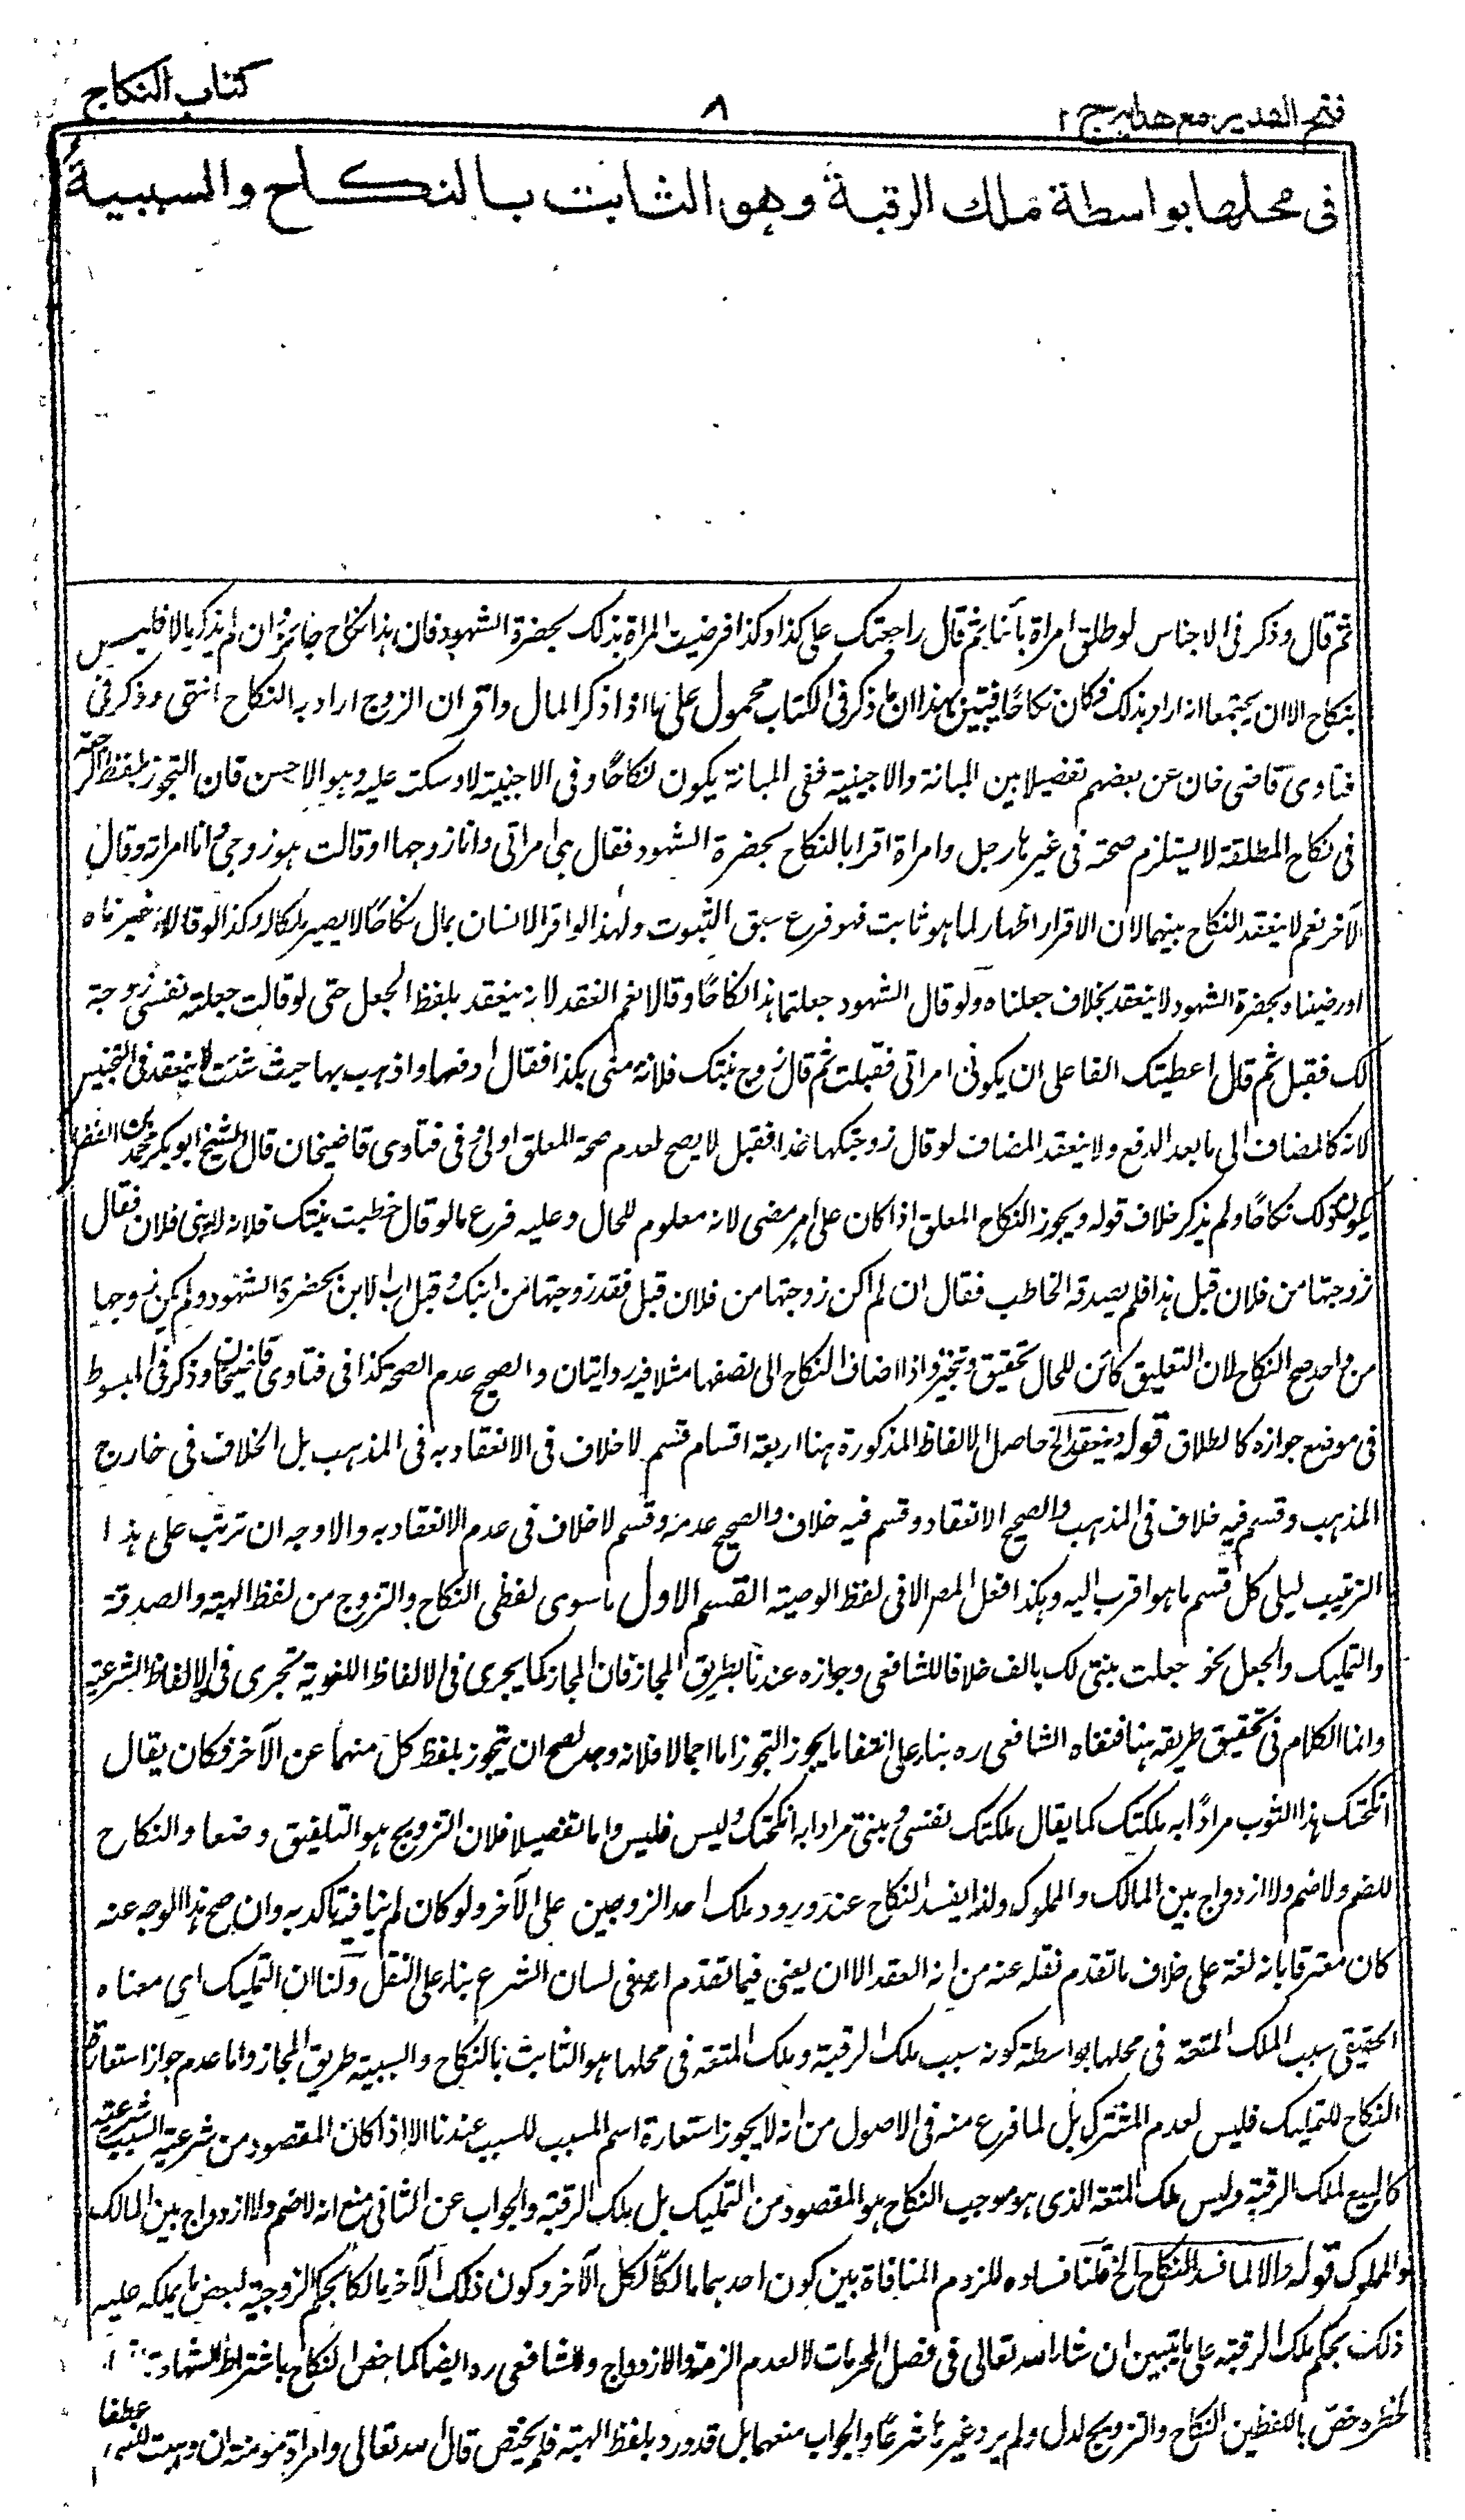 كتاب النكاح
٨
فتح القدير مع هدايه ج ٢
فى محلها بواسطة ملك الرقبة وهو الثابت بالنكاح والسببية
ثم قال وذكر فى الاجناس لو طلق امرأة بائنا ثم قال راجعتك على كذا وكذا فرضيت المرأة بذلك بحضرة الشهود فان هذا نكاح جائز وان لم يذكر مالا فليس
بنكاح الا ان يجتمعا انه اراد بذلك فكان نكاحًا فتبين بهذا ان ما ذكر فى الكتاب محمول على ما اذا ذكر المال واقر ان الزوج اراد به النكاح انتهى وذكر فى
فتاوى قاضى خان عن بعضهم تفصيلا بين المبانة والاجنبية ففى المبانة يكون نكاحًا وفى الاجنبية لا وسكت عليه وهو الاحسن فان التجوز بلفظ الرجعة
فى نكاح المطلقة لا يستلزم صحته فى غيرها رجل وامرأة اقرا بالنكاح بحضرة الشهود فقال هى امرأتى وانا زوجها او قالت هو زوجى وانا امرأته وقال
الآخر نعم لا ينعقد النكاح بينهما لان الاقرار اظهار لما هو ثابت فهو فرع سبق الثبوت ولهذا لو اقر الانسان بمال نكاحًا لا يصير ملكا له وكذا لو قالا اجزناه
او رضيناه بحضرة الشهود لا ينعقد بخلاف جعلناه ولو قال الشهود جعلتما هذا نكاحًا وقالا نعم انعقد لانه ينعقد بلفظ الجعل حتى لو قالت جعلت نفسى زوجة
لك فقبل تم قال اعطيتك الفا على ان يكونى امرأتى فقبلت تم قال زوج بنتك فلانة منى بكذا فقال ادفعها واذهب بها حيث شئت لا ينعقد فى التجنيس
لانه كالمضاف الى ما بعد الدفع ولا ينعقد المضاف لو قال زوجتكها غدا فقبل لا يصح لعدم صحة المعلق اولى وفى فتاوى قاضيخان قال الشيخ ابو بكر محمد بن الفضل
يكون ذلك نكاحًا ولم يذكر خلاف قوله ويجوز النكاح المعلق اذا كان على امر مضى لانه معلوم للحال وعليه فرع ما لو قال خطبت بنتك فلانة لابنى فلان فقال
زوجتها من فلان قبل هذا فلم يصدقه الخاطب فقال ان لم اكن زوجتها من فلان قبل فقد زوجتها من ابنك وقبل اب الابن بحضرة الشهود ولم يكن زوجها
من احد صح النكاح لان التعليق كائن للحال تحقيق وتنجيز واذا اضاف النكاح الى نصفها مثلا فيه روايتان والصحيح عدم الصحة كذا فى فتاوى قاضيخان وذكر فى المبسوط
فى موضع جوازه كالطلاق قوله وينعقد الخ حاصل الالفاظ المذكورة هنا اربعة اقسام قسم لا خلاف فى الانعقاد به فى المذهب بل الخلاف فى خارج
المذهب وقسم فيه خلاف فى المذهب والصحيح الانعقاد وقسم فيه خلاف والصحيح عدمه وقسم لا خلاف فى عدم الانعقاد به والاوجه ان ترتب على هذا
الترتيب ليلى كل قسم ما هو اقرب اليه وهكذا فعل المص الا فى لفظ الوصية القسم الاول ما سوى لفظى النكاح والتزوج من لفظ الهبة والصدقة
والتمليك والجعل نحو جعلت بنتى لك بالف خلافا للشافعى وجوازه عندنا بطريق المجاز فان المجاز كما يجرى فى الالفاظ اللغوية تجرى فى الالفاظ الشرعية
وانما الكلام فى تحقيق طريقه هنا فنفاه الشافعى ره بناء على انتفاء ما يجوز التجوز اما اجمالا فلانه وجد لصح ان يتجوز بلفظ كل منهما عن الآخر فكان يقال
انكحتك هذا الثوب مرادًا به ملكتك كما يقال ملكتك نفسى وبنتى مرادا به انكحتك وليس فليس واما تفصيلا فلان التزويج هو التلفيق وضعا والنكاح
للضم ولا ضم ولا ازدواج بين المالك والمملوك ولذا يفسد النكاح عند ورود ملك احد الزوجين على الآخر ولو كان لم ينافيه تأكد به وان صح هذا الوجه عنه
كان معترفا بانه لغة على خلاف ما تقدم نقله عنه من انه العقد الا ان يعنى فيما تقدم انه فى لسان الشرع بناء على النقل ولنا ان التمليك اى معناه
الحقيقى سبب لملك المتعة فى محلها بواسطة كونه سبب ملك الرقبة وملك المتعة فى محلها هو الثابت بالنكاح والسببية طريق المجاز واما عدم جواز استعارة
النكاح للتمليك فليس لعدم المشترك بل لما فرع منه فى الاصول من انه لا يجوز استعارة اسم المسبب للسبب عندنا الا اذا كان المقصود من شرعية السبب شرعيته
كالبيع لملك الرقبة وليس ملك المتعة الذى هو موجب النكاح هو المقصود من التمليك بل ملك الرقبة والجواب عن الثانى منع انه لا ضم ولا ازدواج بين المالك
والمملوك قوله والا لما فسد النكاح الخ قلنا فساده للزوم المنافاة بين كون احدهما مالكًا لكل الآخر وكون ذلك الآخر مالكا بحكم الزوجية لبعض ما يملكه عليه
ذلك بحكم ملك الرقبة على ما يتبين ان شاء الله تعالى فى فصل المحرمات لا لعدم الزمة والازدواج وللشافعى ره ايضا كما خص النكاح باشتراط الشهادة
لخطره خص باللفظين النكاح والتزويج لدل ولم يرد غيرها شرعًا والجواب منعهما بل قد ورد بلفظ الهبة فلم يختص قال الله تعالى وامرأة مؤمنة ان وهبت للنبى عطفا